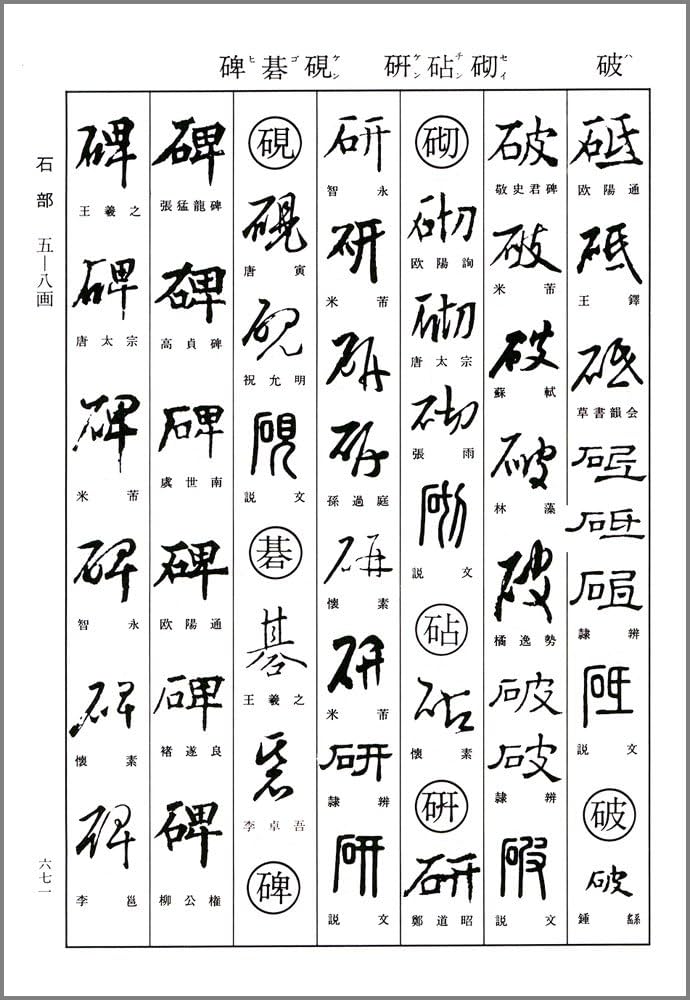 破ハ
砌セイ 砧チン 硏ケン
硯ケン 碁ゴ 碑ヒ
砥
欧陽通
砥
王鐸
砥
草書韻会
砥
砥
砥
隷辨
砥
説文
破
破
鍾繇
破
敬史君碑
破
米芾
破
蘇軾
破
林藻
破
橘逸勢
破
破
隷辨
破
説文
砌
砌
欧陽詢
砌
唐太宗
砌
張雨
砌
説文
砧
砧
懐素
硏
研
鄭道昭
研
智永
研
米芾
研
研
孫過庭
研
懐素
研
米芾
研
隷辨
研
説文
硯
硯
唐寅
硯
祝允明
硯
説文
碁
碁
王羲之
碁
李卓吾
碑
碑
張猛龍碑
碑
高貞碑
碑
虞世南
碑
欧陽通
碑
褚遂良
碑
柳公権
碑
王羲之
碑
唐太宗
碑
米芾
碑
智永
碑
懐素
碑
李邕
石部 五―八画
六七一